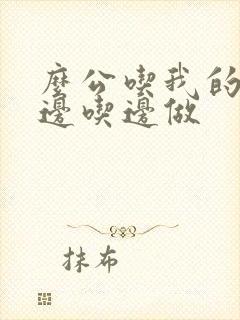 麼公喫我的
邊喫邊做
抹布